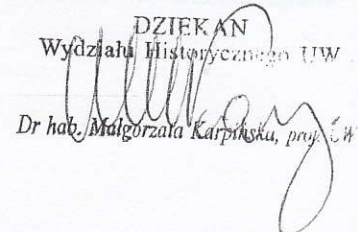 DZIEKAN
Wydziału Historycznego UW
Dr hab. Małgorzata Karpińska, prof. UW